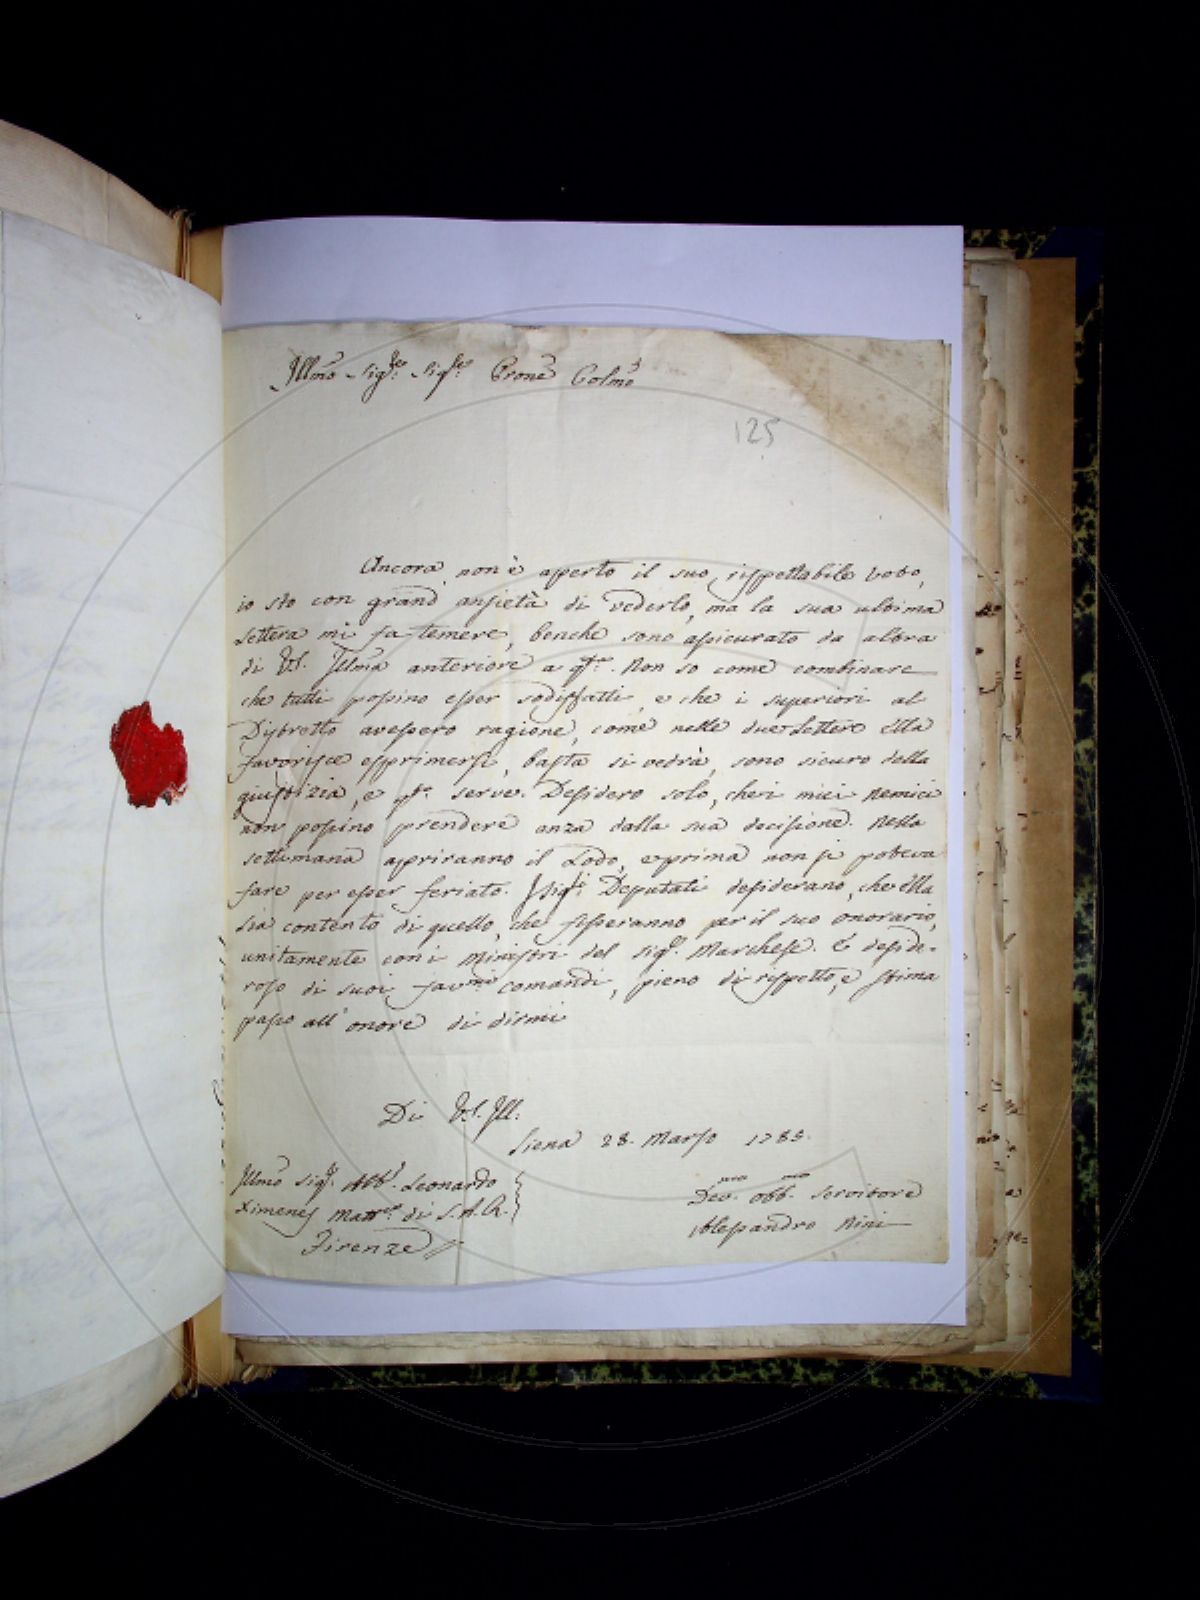 Illmo Sigre Sigre Prone Colmo
125
Ancora non è aperto il suo rispettabile voto,
io sto con grand ansietà di vederlo, ma la sua ultima
lettera mi fa temere, benche sono assicurato da altra
di VS. Illma anteriore a qta. Non so come combinare
che tutti possino esser sodisfatti, e che i superiori al
Distretto avessero ragione, come nelle due Lettere Ella
favorisce esprimersi, basta si vedrà, sono sicuro della
giustizia, e qto serve. Desidero solo, che i miei Nemici
non possino prendere anza dalla sua decisione. Nella
settimana apriranno il Lodo, e prima non si poteva
fare per esser feriato. I Sigri Deputati desiderano, che Ella
sia contento di quello, che fisseranno per il suo onorario,
unitamente con i Ministri del Sigr Marchese. E deside-
roso di suoi favmi comandi, pieno di rispetto, e stima
passo all'onore di dirmi
Di VS. Ill:
Siena 28. Marso 1785.
Illmo Sigr Abb. Leonardo
Ximenes Mattco di S.A.R.
Firenze
Devmo Obbmo Servitore
Alessandro Nini